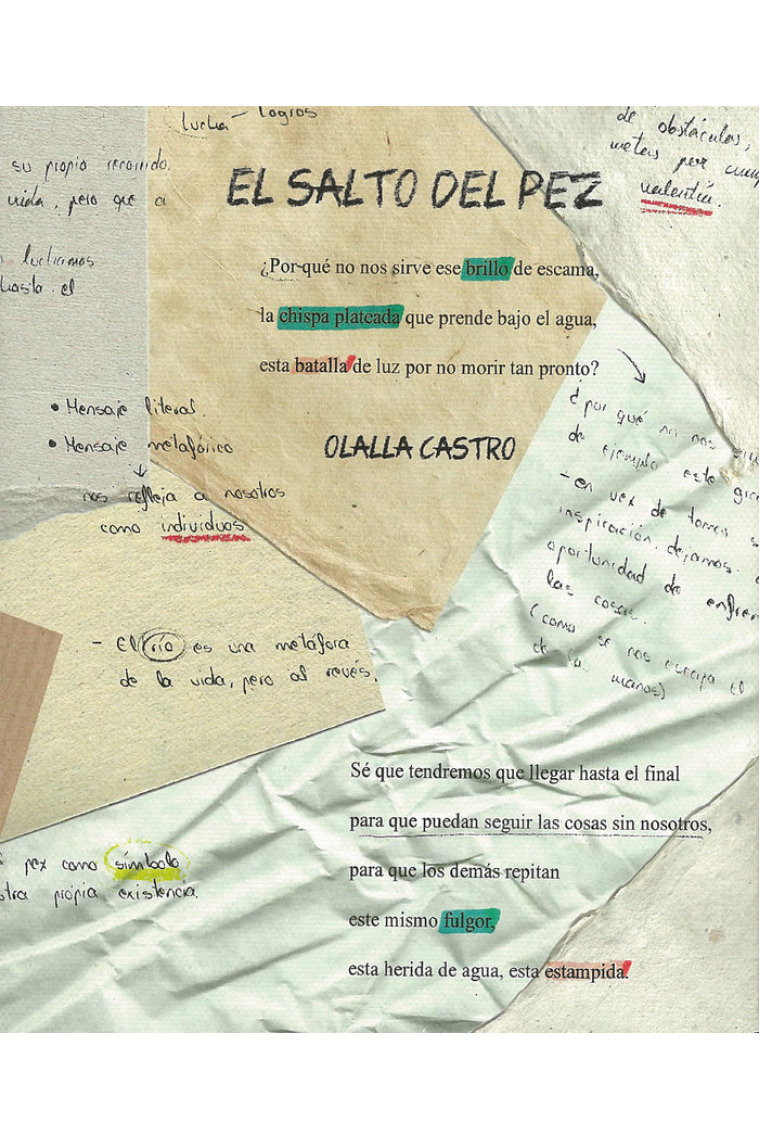 lucha - logros
de obstáculos,
metas por
valentía.
su propio recorrido.
vida, pero que a
luchemos
hasta el
EL SALTO DEL PEZ
¿Por qué no nos sirve ese brillo de escama,
la chispa plateada que prende bajo el agua,
esta batalla de luz por no morir tan pronto?
OLALLA CASTRO
• Mensaje literal.
• Mensaje metafórico
nos refleja a nosotros
como individuos
¿por qué no nos
de ejemplo este
- en vez de
inspiración, dejamos
oportunidad de
las cosas.
(como se nos escapa el
de las manos)
- El río es una metáfora
de la vida, pero al revés.
Sé que tendremos que llegar hasta el final
para que puedan seguir las cosas sin nosotros,
para que los demás repitan
este mismo fulgor,
esta herida de agua, esta estampida.
pez como símbolo
propia existencia.